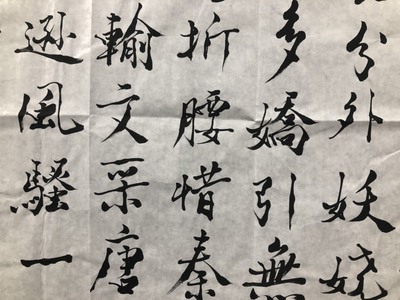 分外妖娆
多嬌引無
折腰惜秦
輸文采唐
遜風騷一